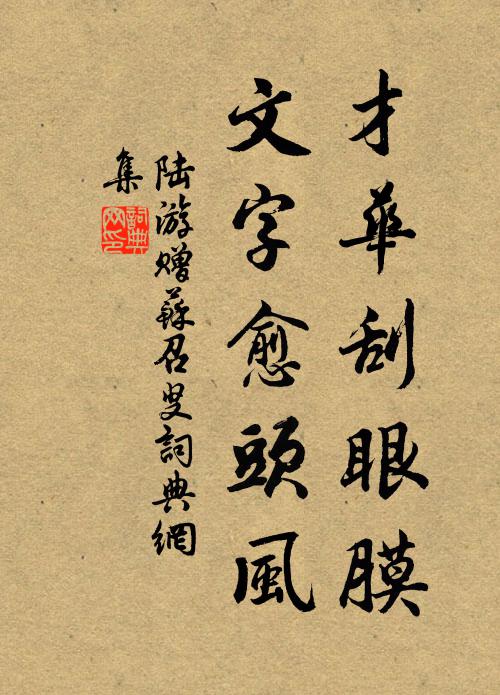 才華刮眼膜
文字愈頭風
陸游贈蘇召叟詞典網
集
詞典
网印